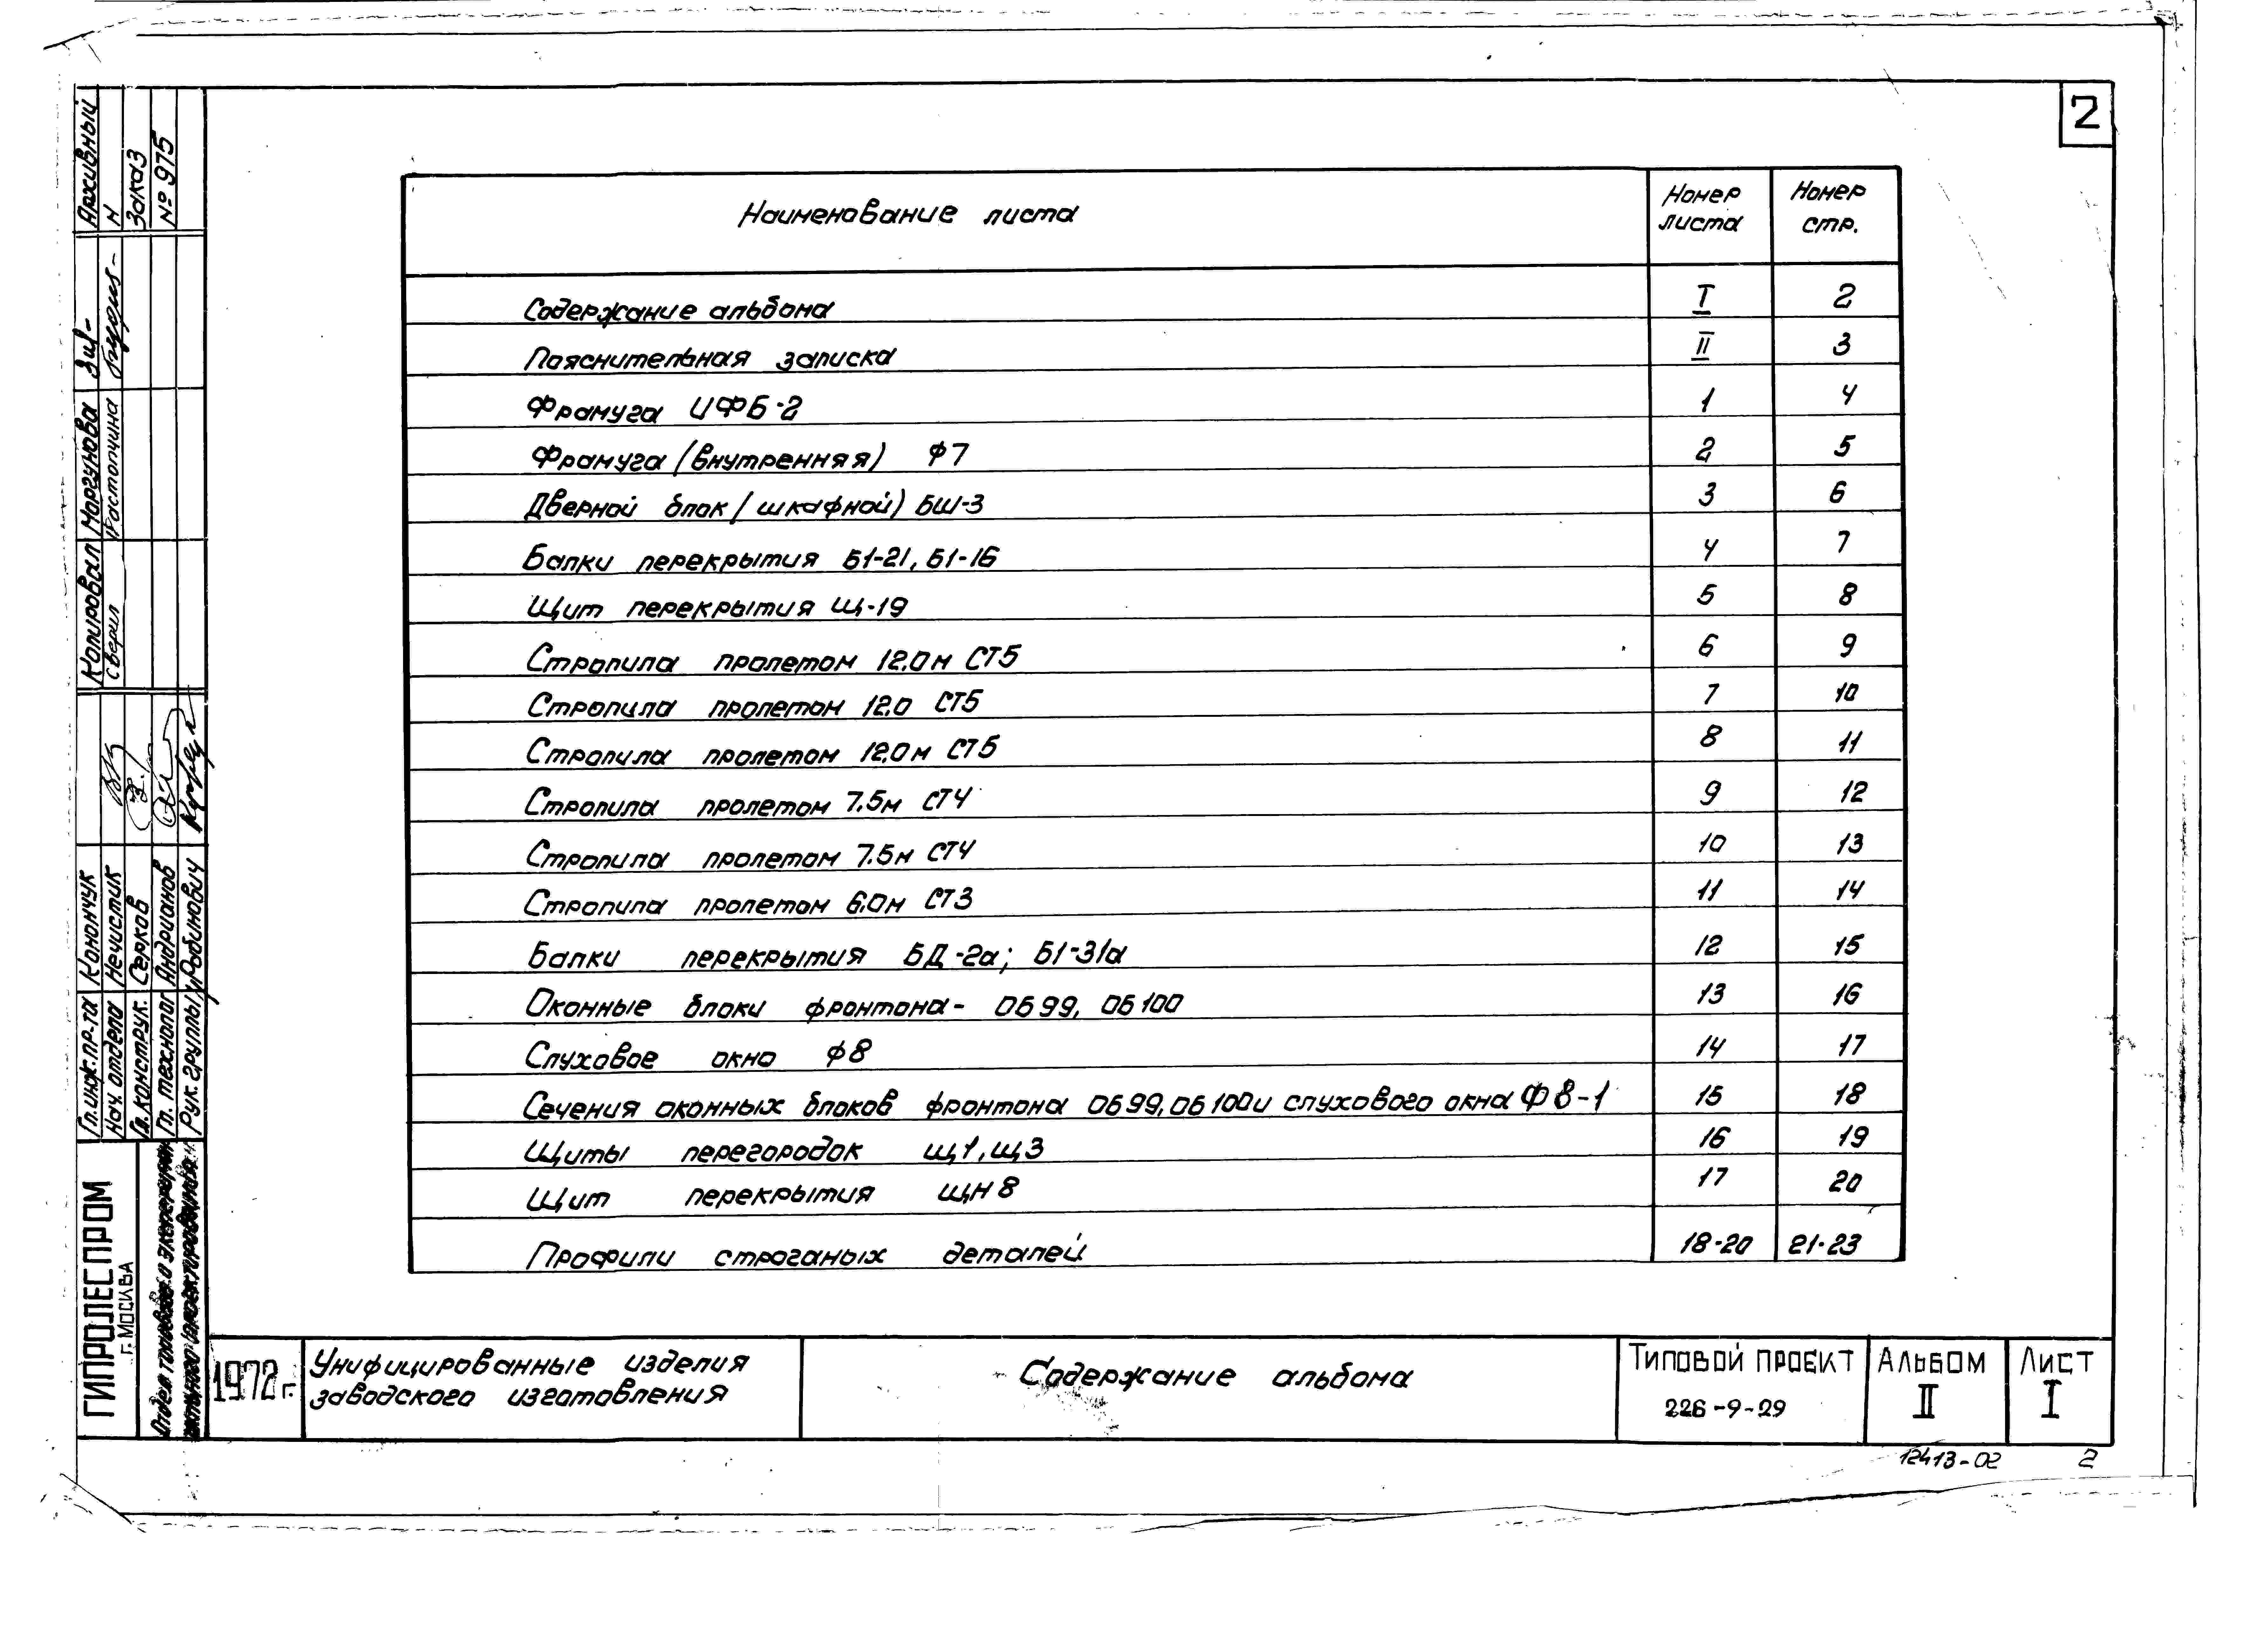 2
Наименование листа
Номер листа
Номер стр.
Содержание альбома I 2
Пояснительная записка II 3
Фрамуга ЦФБ-2 1 4
Фрамуга (внутренняя) Ф7 2 5
Дверной блок (шкафной) БШ-3 3 6
Балки перекрытия Б1-21, Б1-16 4 7
Щит перекрытия Щ-19 5 8
Стропила пролетом 12.0м СТ5 6 9
Стропила пролетом 12.0 СТ5 7 10
Стропила пролетом 12.0м СТ5 8 11
Стропила пролетом 7.5м СТ4 9 12
Стропила пролетом 7.5м СТ4 10 13
Стропила пролетом 6.0м СТ3 11 14
Балки перекрытия БД-2а; Б1-31а 12 15
Оконные блоки фронтона- ОБ99, ОБ100 13 16
Слуховое окно Ф8 14 17
Сечения оконных блоков фронтона ОБ99, ОБ100 и слухового окна Ф8-1 15 18
Щиты перегородок Щ1, Щ3 16 19
Щит перекрытия ЩН8 17 20
Профили строганых деталей 18-20 21-23
Архивный
н
Заказ
№ 975
Копировал Моргунова
Сверил Растопчина
Гл. инж. пр-та Конончук
Нач. отдела Нечистик
Гл. конструк. Серков
Гл. технолог Андрианов
Рук. группы Рабинович
ГИПРОЛЕСПРОМ
г. МОСКВА
1972 г.
Унифицированные изделия
заводского изготовления
Содержание альбома
ТИПОВОЙ ПРОЕКТ
226-9-29
АЛЬБОМ
II
ЛИСТ
I
12413-02 2